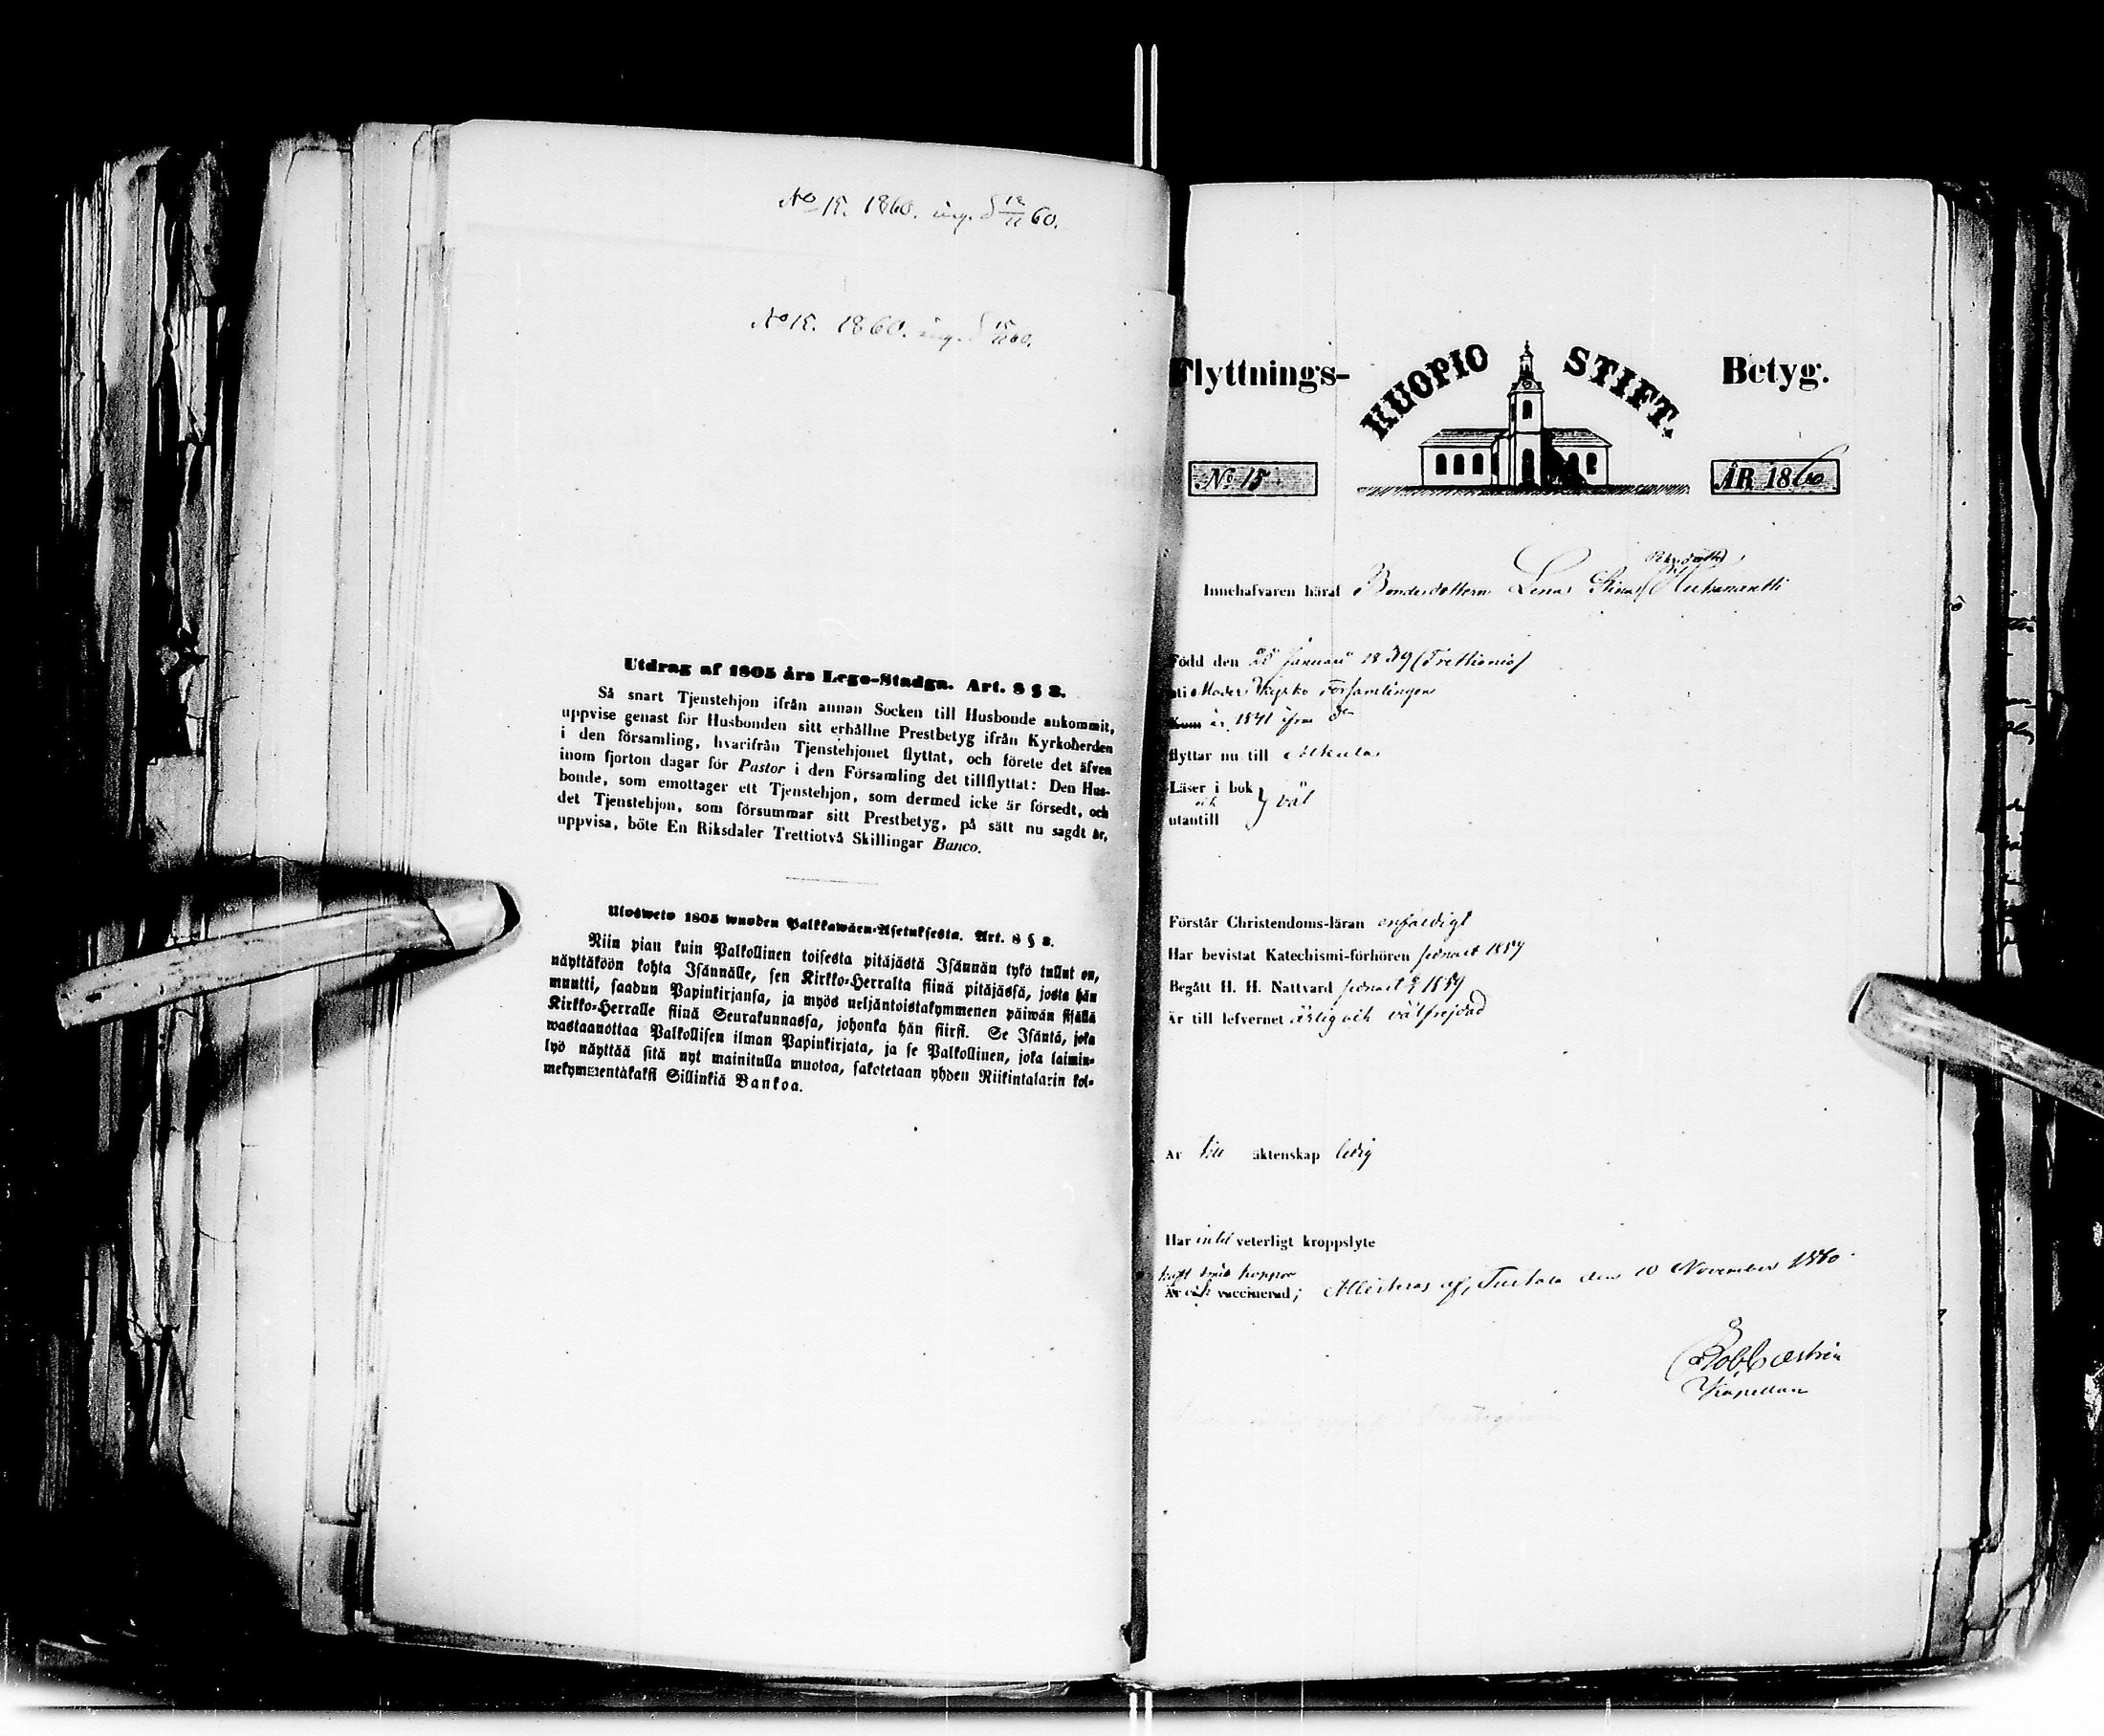 No 15. 1860. ing. d 12/11 60.
No 15. 1860. ing. d 15/11 60.
Utdrag af 1805 års Lego-Stadga. Art. 8 § 3.
Så snart Tjenstehjon ifrån annan Socken till Husbonde ankommit,
uppvise genast för Husbonden sitt erhållne Prestbetyg ifrån Kyrkoherden
i den församling, hvarifrån Tjenstehjonet flyttat, och förete det äfven
inom fjorton dagar för Pastor i den Församling det tillflyttat: Den Hus-
bonde, som emottager ett Tjenstehjon, som dermed icke är försedt, och
det Tjenstehjon, som försummar sitt Prestbetyg, på sätt nu sagdt är,
uppvisa, böte En Riksdaler Trettiotvå Skillingar Banco.
Ulosweto 1805 wuoden Palkkawäen-Asetuksesta. Art. 8 § 3.
Niin pian kuin Palkollinen toisesta pitäjästä Isännän tykö tullut on,
näyttäköön kohta Isännälle, sen Kirkko-Herralta siinä pitäjässä, josta hän
muutti, saadun Papinkirjansa, ja myös neljäntoistakymmenen päiwän sisällä
Kirkko-Herralle siinä Seurakunnassa, johonka hän siirsi. Se Isäntä, joka
wastaanottaa Palkollisen ilman Papinkirjata, ja se Palkollinen, joka laimin-
lyö näyttää sitä nyt mainitulla muotoa, sakotetaan yhden Riikintalarin kol-
mekymmentäkaksi Sillinkiä Bankoa.
Flyttnings- KUOPIO STIFT. Betyg.
No 15 ÅR 1860
Innehafvaren häraf Bondedottern Lena Stina
Född den 25 Januari 1839 (Trettionio)
uti Moder Kyrko församlingen
Kom år 1841 ifrån d:o
flyttar nu till Alkula
Läser i bok
och } väl
utantill
Förstår Christendoms-läran enfaldigt
Har bevistat Katechismi-förhören sednast 1859
Begått H. H. Nattvard sednast 1859
Är till lefvernet ärlig och välfrejdad
Är till äktenskap ledig
Har intet veterligt kroppslyte
haft koppor
Är och vaccinerad; Attesteras af, Turtola den 10 November 1860
Kapellan